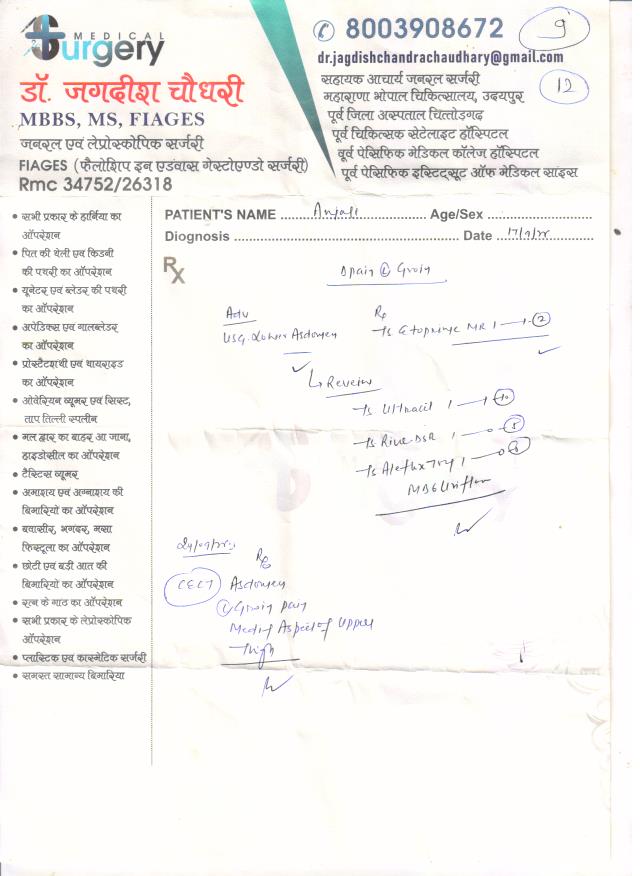 MEDICAL
Surgery
डॉ. जगदीश चौधरी
MBBS, MS, FIAGES
जनरल एवं लेप्रोस्कोपिक सर्जरी
FIAGES (फैलोशिप इन एडवास गेस्टोएण्डो सर्जरी)
Rmc 34752/26318
8003908672
9
dr.jagdishchandrachaudhary@gmail.com
12
सहायक आचार्य जनरल सर्जरी
महाराणा भोपाल चिकित्सालय, उदयपुर
पूर्व जिला अस्पताल चित्तोडगढ
पूर्व चिकित्सक सेटेलाइट हॉस्पिटल
पूर्व पेसिफिक मेडिकल कॉलेज हॉस्पिटल
पूर्व पेसिफिक इस्टिट्सूट ऑफ मेडिकल साइंस
PATIENT'S NAME Anjali Age/Sex
Diognosis Date 17/7/22
• सभी प्रकार के हार्निया का
ऑपरेशन
• पित की थेली एवं किडनी
की पथरी का ऑपरेशन
• यूनेटर एवं ब्लेडर की पथरी
का ऑपरेशन
• अपेंडिक्स एवं गालब्लेडर
का ऑपरेशन
• प्रोस्टैटग्रांथी एवं थायराइड
का ऑपरेशन
• ओवेरियन व्यूमर एवं सिस्ट,
ताप तिल्ली स्पलीन
• मल द्वार का बाहर आ जाना,
हाइडोसील का ऑपरेशन
• टैस्टिस व्यूमर
• अमाशय एवं अग्नाशय की
बिमारियों का ऑपरेशन
• बवासीर, भगदर, मसा
फिस्टूला का ऑपरेशन
• छोटी एवं बडी आत की
बिमारियों का ऑपरेशन
• स्तन के गाठ का ऑपरेशन
• सभी प्रकार के लेप्रोस्कोपिक
ऑपरेशन
• प्लास्टिक एवं कास्मेटिक सर्जरी
• समस्त सामान्य बिमारिया
Rx
pain (L) Groin
Adv
USG. Lower Abdomen
Rx
MR 1 2
Review
1 10
1 5
1 5
Rx
CECT Abdomen
(L) Groin pain
Medial Aspect of Upper
Thigh